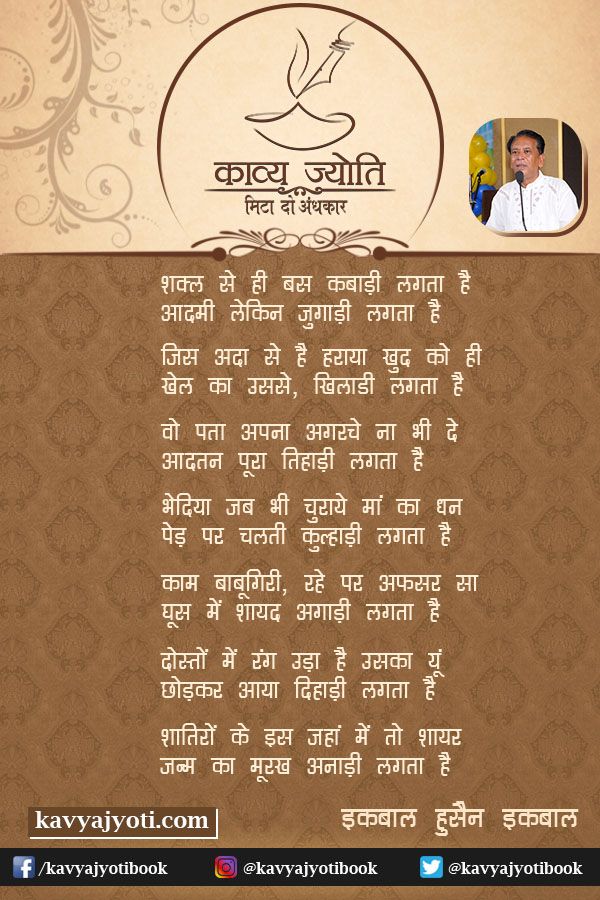 काव्य ज्योति
मिटा दो अंधकार
शक्ल से ही बस कबाड़ी लगता है
आदमी लेकिन जुगाड़ी लगता है
जिस अदा से है हराया खुद को ही
खेल का उससे, खिलाडी लगता है
वो पता अपना अगरचे ना भी दे
आदतन पूरा तिहाड़ी लगता है
भेदिया जब भी चुराये मां का धन
पेड़ पर चलती कुल्हाड़ी लगता है
काम बाबूगिरी, रहे पर अफसर सा
घूस में शायद अगाड़ी लगता है
दोस्तों में रंग उड़ा है उसका यूं
छोड़कर आया दिहाड़ी लगता है
शातिरों के इस जहां में तो शायर
जन्म का मूरख अनाड़ी लगता है
इकबाल हुसैन इकबाल
kavyajyoti.com
/kavyajyotibook
@kavyajyotibook
@kavyajyotibook